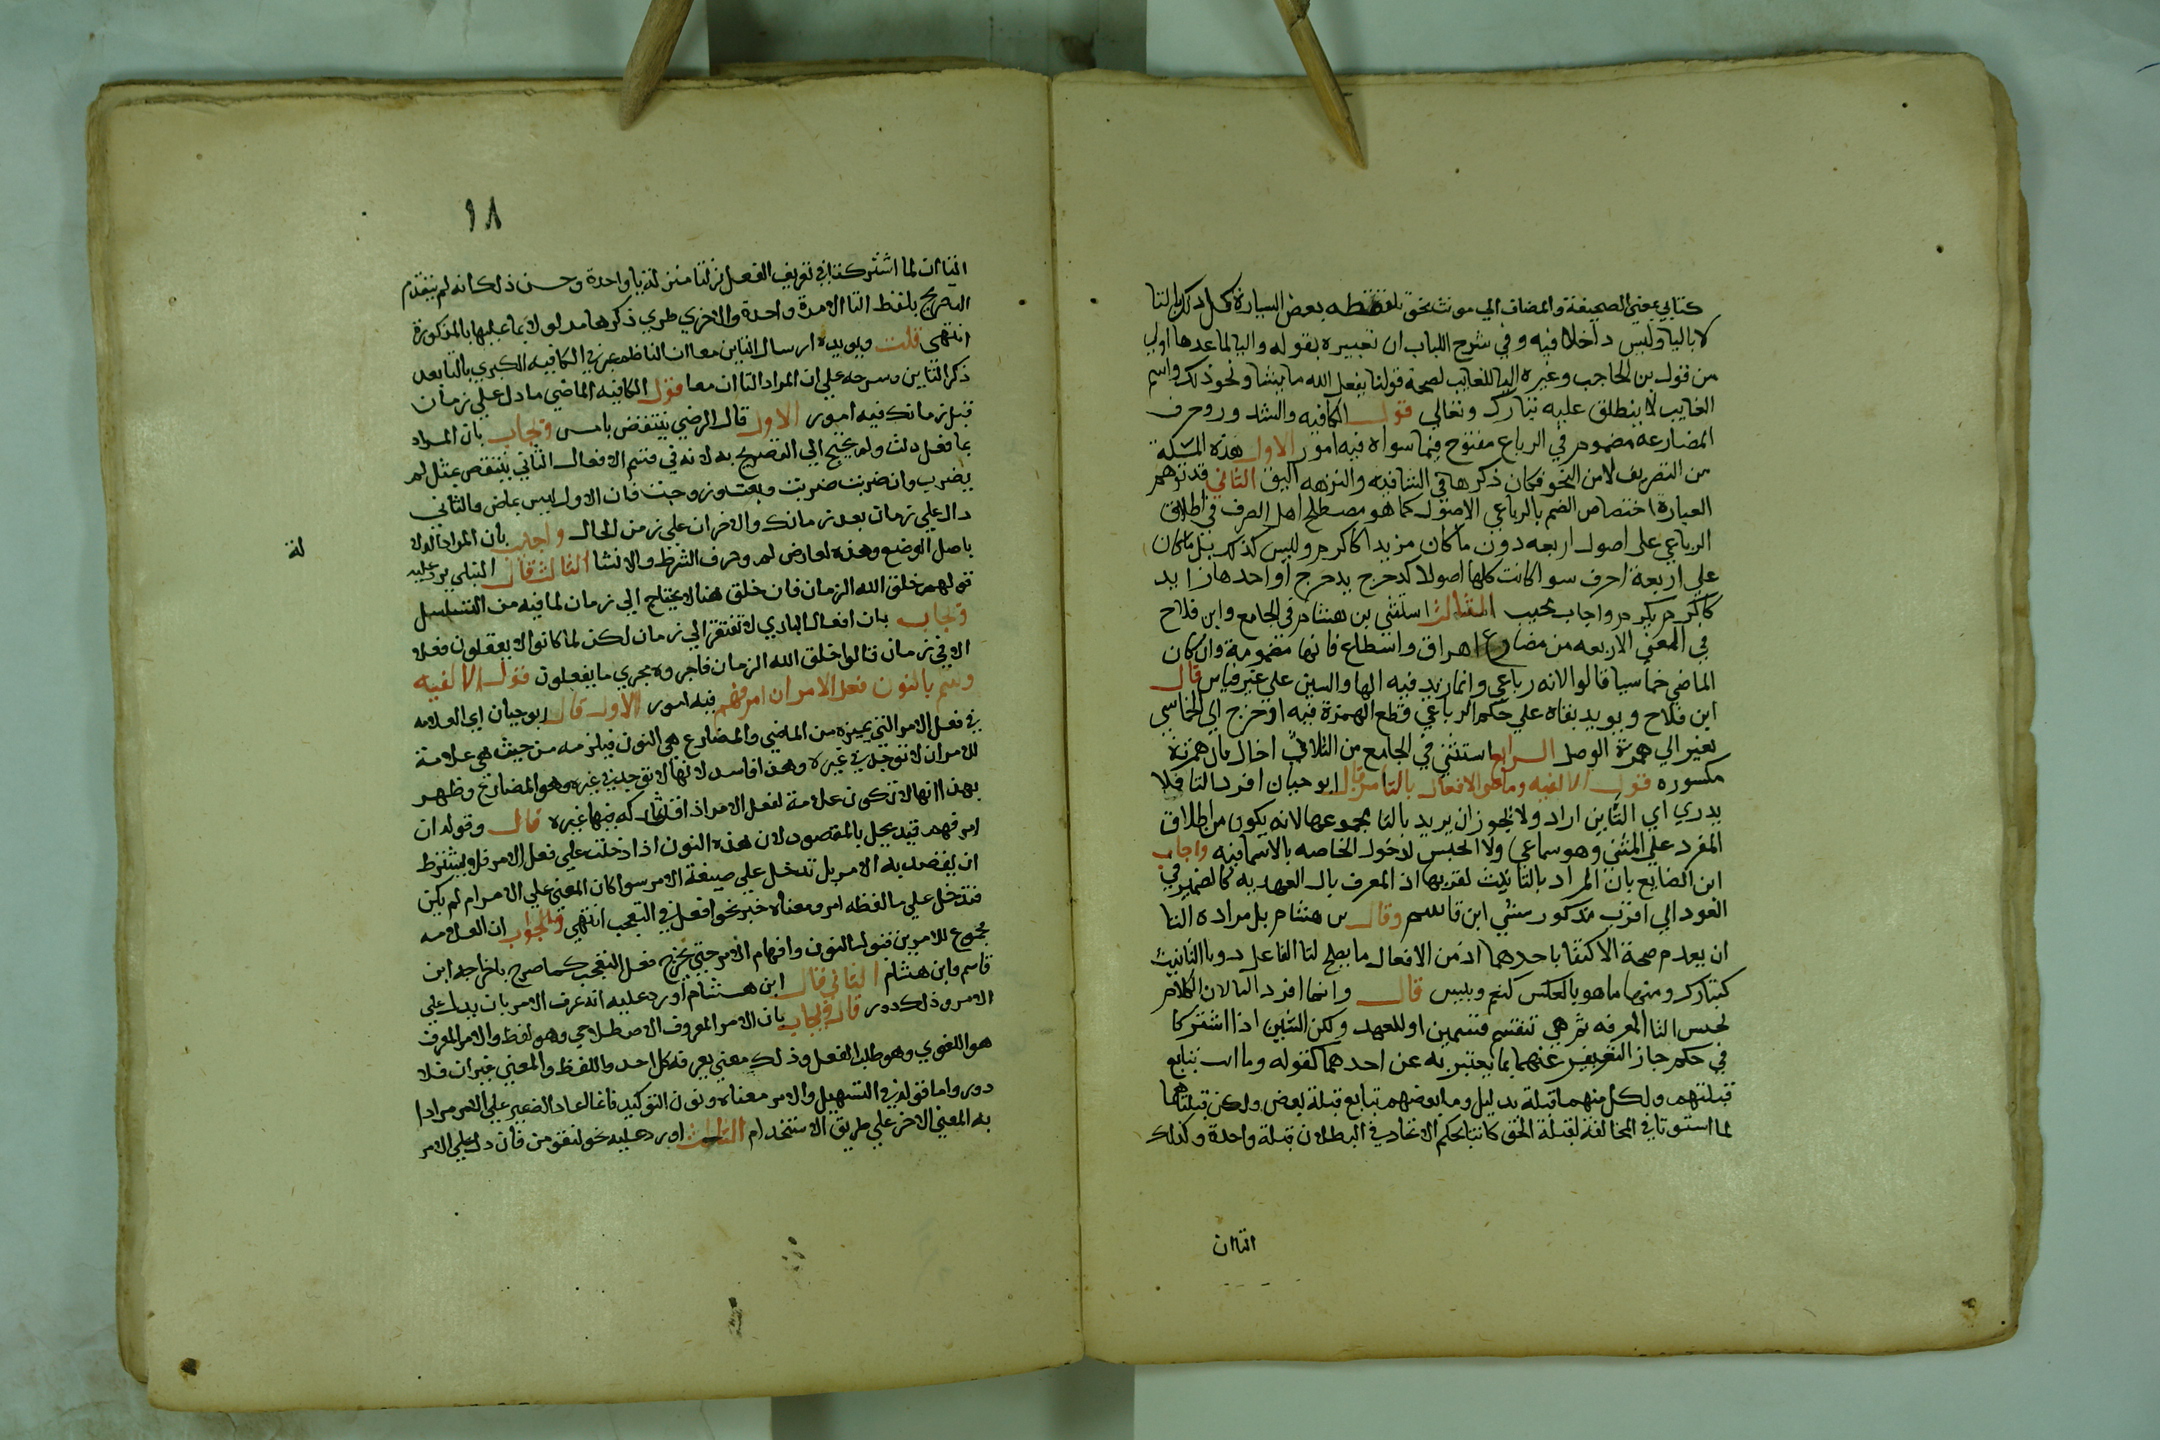 كتابي بمعني الصحيفة والمضاف الي مونث نحو تلتقطه بعض السيارة كل ذلك بالتا
لا باليا وليس داخلا فيه وفي شرح اللباب ان تعبيره بقوله واليا لما عدها اولي
من قول بن الحاجب وغيره اليا للغايب لصحة قولنا يفعل الله ما يشا ونحو ذلك واسم
الغايب لا ينطلق عليه تبارك وتعالي قول الكافيه والشذور وحرف
المضارعه مضموم في الرباع مفتوح فيما سواه فيه امور الاول هذه المسئلة
من التصريف لا من النحو فكان ذكرها في الشافيه والنزهه اليق الثاني قد توهم
العبارة اختصاص الضم بالرباعي الاصول كما هو مصطلح اهل الصرف في اطلاق
الرباعي علي اصول اربعه دون ما كان مزيدا كاكرم وليس كذلك بل ما كان
علي اربعة احرف سوا كانت كلها اصولا كدحرج يدحرج او احدها زايد
كاكرم يكرم واجاب مجيب الثالث استثني بن هشام في الجامع وابن فلاح
في المغني الاربعه من مضارع اهراق واسطاع فانها مضمومة وان كان
الماضي خماسيا قالوا لانه رباعي وانما زيد فيه الها والسين علي غير قياس قال
ابن فلاح ويويد بقاه علي حكم الرباعي قطع الهمزة فيه او خرج اي الخماسي
لغير الي همزة الوصل الرابع استثني في الجامع من الثلاثي اخال فان همزته
مكسوره قول الالفيه وماضي الافعال بالتا مز قال ابو حيان افرد التا فلا
يدري اي التاين اراد ولا يجوز ان يريد بالتا مجموعهما لانه يكون من اطلاق
المفرد علي المثني وهو سماعي ولا الجنس لدخول الخاصه بالاسما فيه واجاب
ابن الضايع بان المراد بالتا تانيث لقربها اذ المعرف بال العهديه كالضمير في
العود الي اقرب مذكور مشي ابن قاسم وقال بن هشام بل مراده التا
ان يعلم صحة الاكتفا باحدهما اذ من الافعال ما يصلح لتا الفاعل دون التانيث
كتبارك ومنها ما هو بالعكس كنعم وبيس قال وانما افرد التا لان الكلام
لجنس التا المعرفه ثم هي تنقسم قسمين او للعهد ولكن الشيين اذا اشتركا
في حكم جاز التعريف عنهما بما يعتبر به عن احدهما كقوله وما انت بتابع
قبلتهم ولكل منهما قبلة بدليل وما بعضهم بتابع قبلة بعض ولكن قبلتاهما
لما استوتا في المخالفة لقبلة الحق كانتا بحكم الاتحاد في البطلان قبلة واحدة وكذلك
التاان
٩٨
التاان لما اشتركتا في تعريف الفعل نزلتا منزلة تا واحدة وحسن ذلك انه لم يتقدم
التصريح بلفظ التا الا مرة واحدة والاخري طري ذكرها مدلولا بما عليها بالمذكورة
انتهي قلت ويويده ارسال التاين معا ان الناظم عبر في الكافيه الكبري بالتا بعد
ذكر التاين وشرحه علي ان المراد التاان معا قول الكافيه الماضي ما دل علي زمان
قبل زمانك فيه امور الاول قال الرضي ينتقض بامس ويجاب بان المراد
بما فعل دلت ولم يحتج الي التصريح به لانه في قسم الافعال الثاني ينتقض بمثل لم
يضرب وان ضربت ضربت وبعت وزوجت فان الاول ليس بماض والثاني
دال علي زمان بعد زمانك والاخران علي زمن الحال واجاب بان المراد الدلالة
لة
باصل الوضع وهذه لعارض لم وحرف الشرط والانشا الثالث قال النيلي يرد عليه
قولهم خلق الله الزمان فان خلق هنا لا يحتاج الي زمان لما فيه من التسلسل
ويجاب بان افعال الباري لا تفتقر الي زمان لكن لما كانوا لا يعقلون فعلا
الا في زمان قالوا خلق الله الزمان فاجروه مجري ما يفعلون قول الالفيه
وسم بالنون فعل الامر ان امر فهم فيه امور الاول قال ابو حيان اي العلامه
في فعل الامر التي تميزه من الماضي والمضارع هي النون فيلزمه من حيث هي علامة
للامر ان لا توجد في غيره وهذا فاسد لانها توجد في غيره وهو المضارع وظهر
بهذا انها لا تكون علامة لفعل الامر اذ قد شاركه فيها غيره قال وقوله ان
امر فهم قيد يخل بالمقصود لان هذه النون اذا دخلت علي فعل الامر فلا يشترط
ان يقصد به الامر بل تدخل علي صيغة الامر سوا كان المعني علي الامر ام لم يكن
فتدخل علي ما لفظه امر ومعناه خبر نحو افعل في التعجب انتهي والجواب ان العلامه
مجموع للامرين قبول النون وافهام الامر حتي يخرج فعل التعجب كما صرح باخراجه ابن
قاسم وابن هشام الثاني قال ابن هشام اورد عليه انه عرف الامر بان يدل علي
الامر وذلك دور قال ويجاب بان الامر المعروف الاصطلاحي وهو لفظ والامر المعرف
هو اللغوي وهو طلب الفعل وذلك معني يعرفه كل احد واللفظ والمعني غيران فلا
دور واما قوله في التسهيل والامر معناه ونون التوكيد فانما عاد الضمير علي الامر مرادا
به المعني الاخر علي طريق الاستخدام الثالث اورد عليه نحو لتقومن فان دل علي الامر